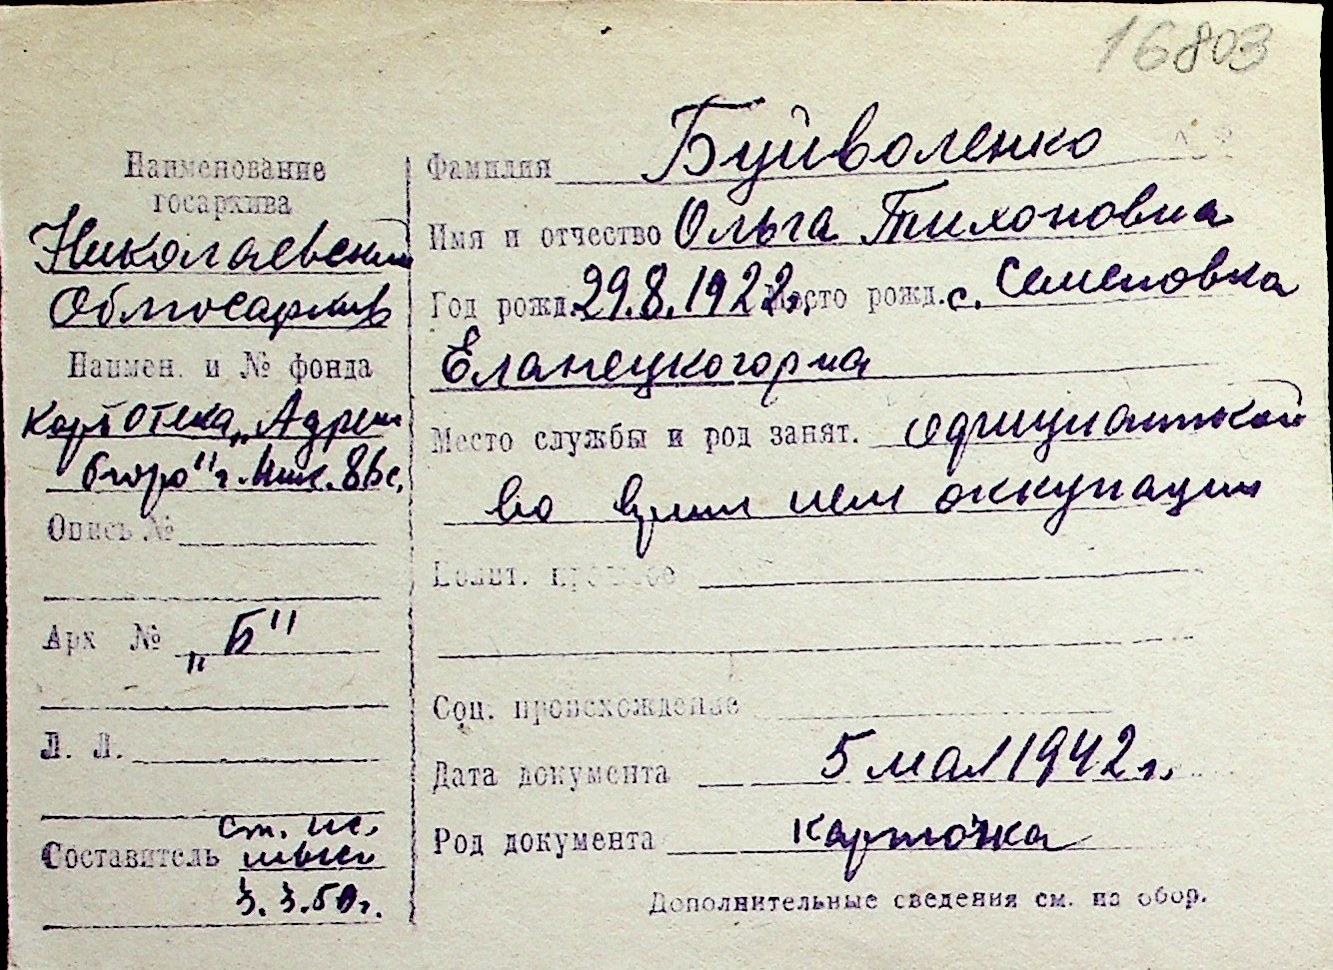 16803
Наименование
госархива
Николаевский
Облгосархив
Наимен. и № фонда
Картотека „Адресн
бюро" г. Ник.
Опись №
Арх № „Б"
Л. Л.
Составитель ст.
3.3.50г.
Фамилия Буйволенко
Имя и отчество Ольга Тихоновна
Год рожд. 29.8.1922г. Место рожд. с. Семеновка
Еланецкогор-на
Место службы и род занят. официанткой
во время нем оккупации
Полит. прошлое
Соц. происхождение
Дата документа 5 мая 1942 г.
Род документа карточка
Дополнительные сведения см. на обор.